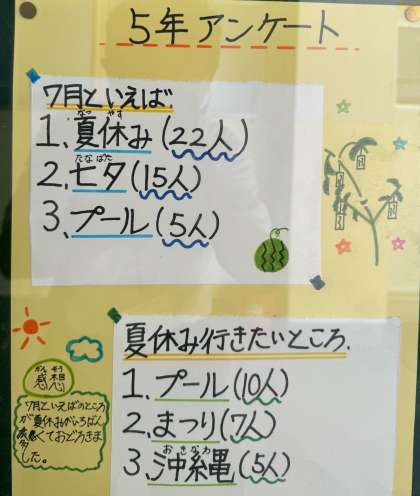 5年アンケート
7月といえば.
なつ やす
1、夏休み(22人)
たなばた
2、七夕(15人)
3、プール(5人)
夏休み行きたいところ.
1、プール(10人)
2、まつり(7人)
おきなわ
3、沖縄(5人)
かんそう
感想
7月といえばのところ
が夏休みがいちばん
多くておどろきま
した。